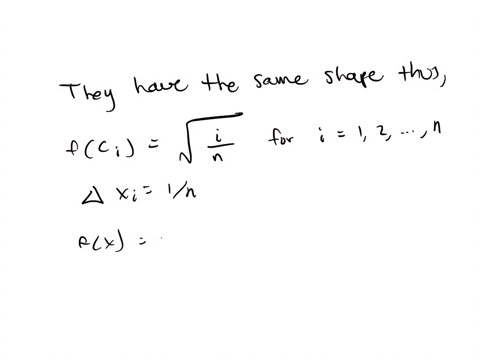 They have the same shape thus,
f(c_i) = √(i/n) for i = 1, 2, ..., n
Δx_i = 1/n
f(x) =